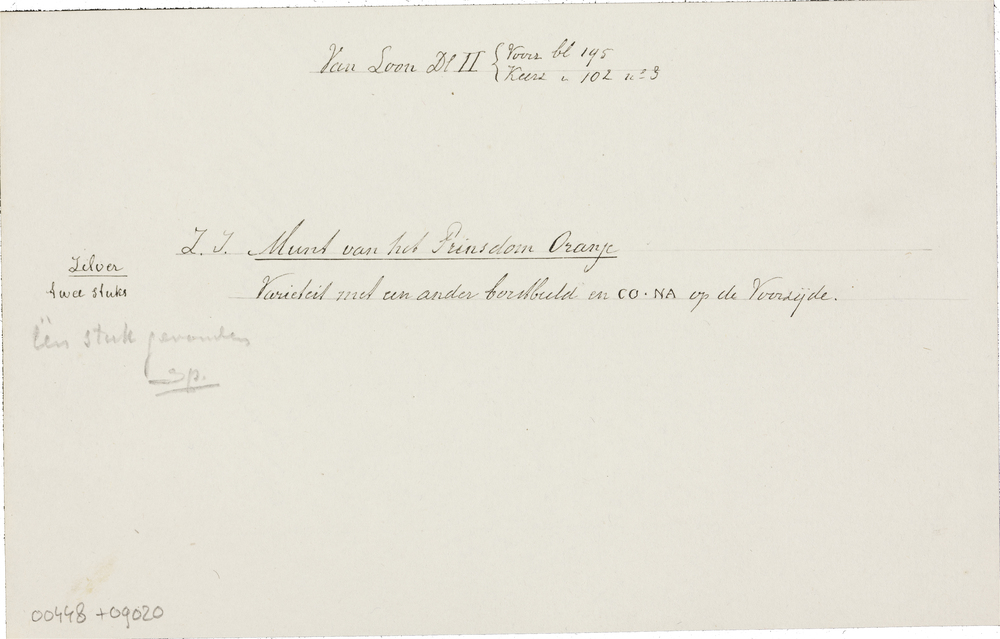 Van Loon Dl II { Voorz bl 195
Keerz " 102 no 3
Z. J. Munt van het Prinsdom Oranje
Zilver
twee stuks
Varieteit met een ander borstbeeld en CO·NA op de Voorzijde.
Één stuk gevonden
00448 + 09020